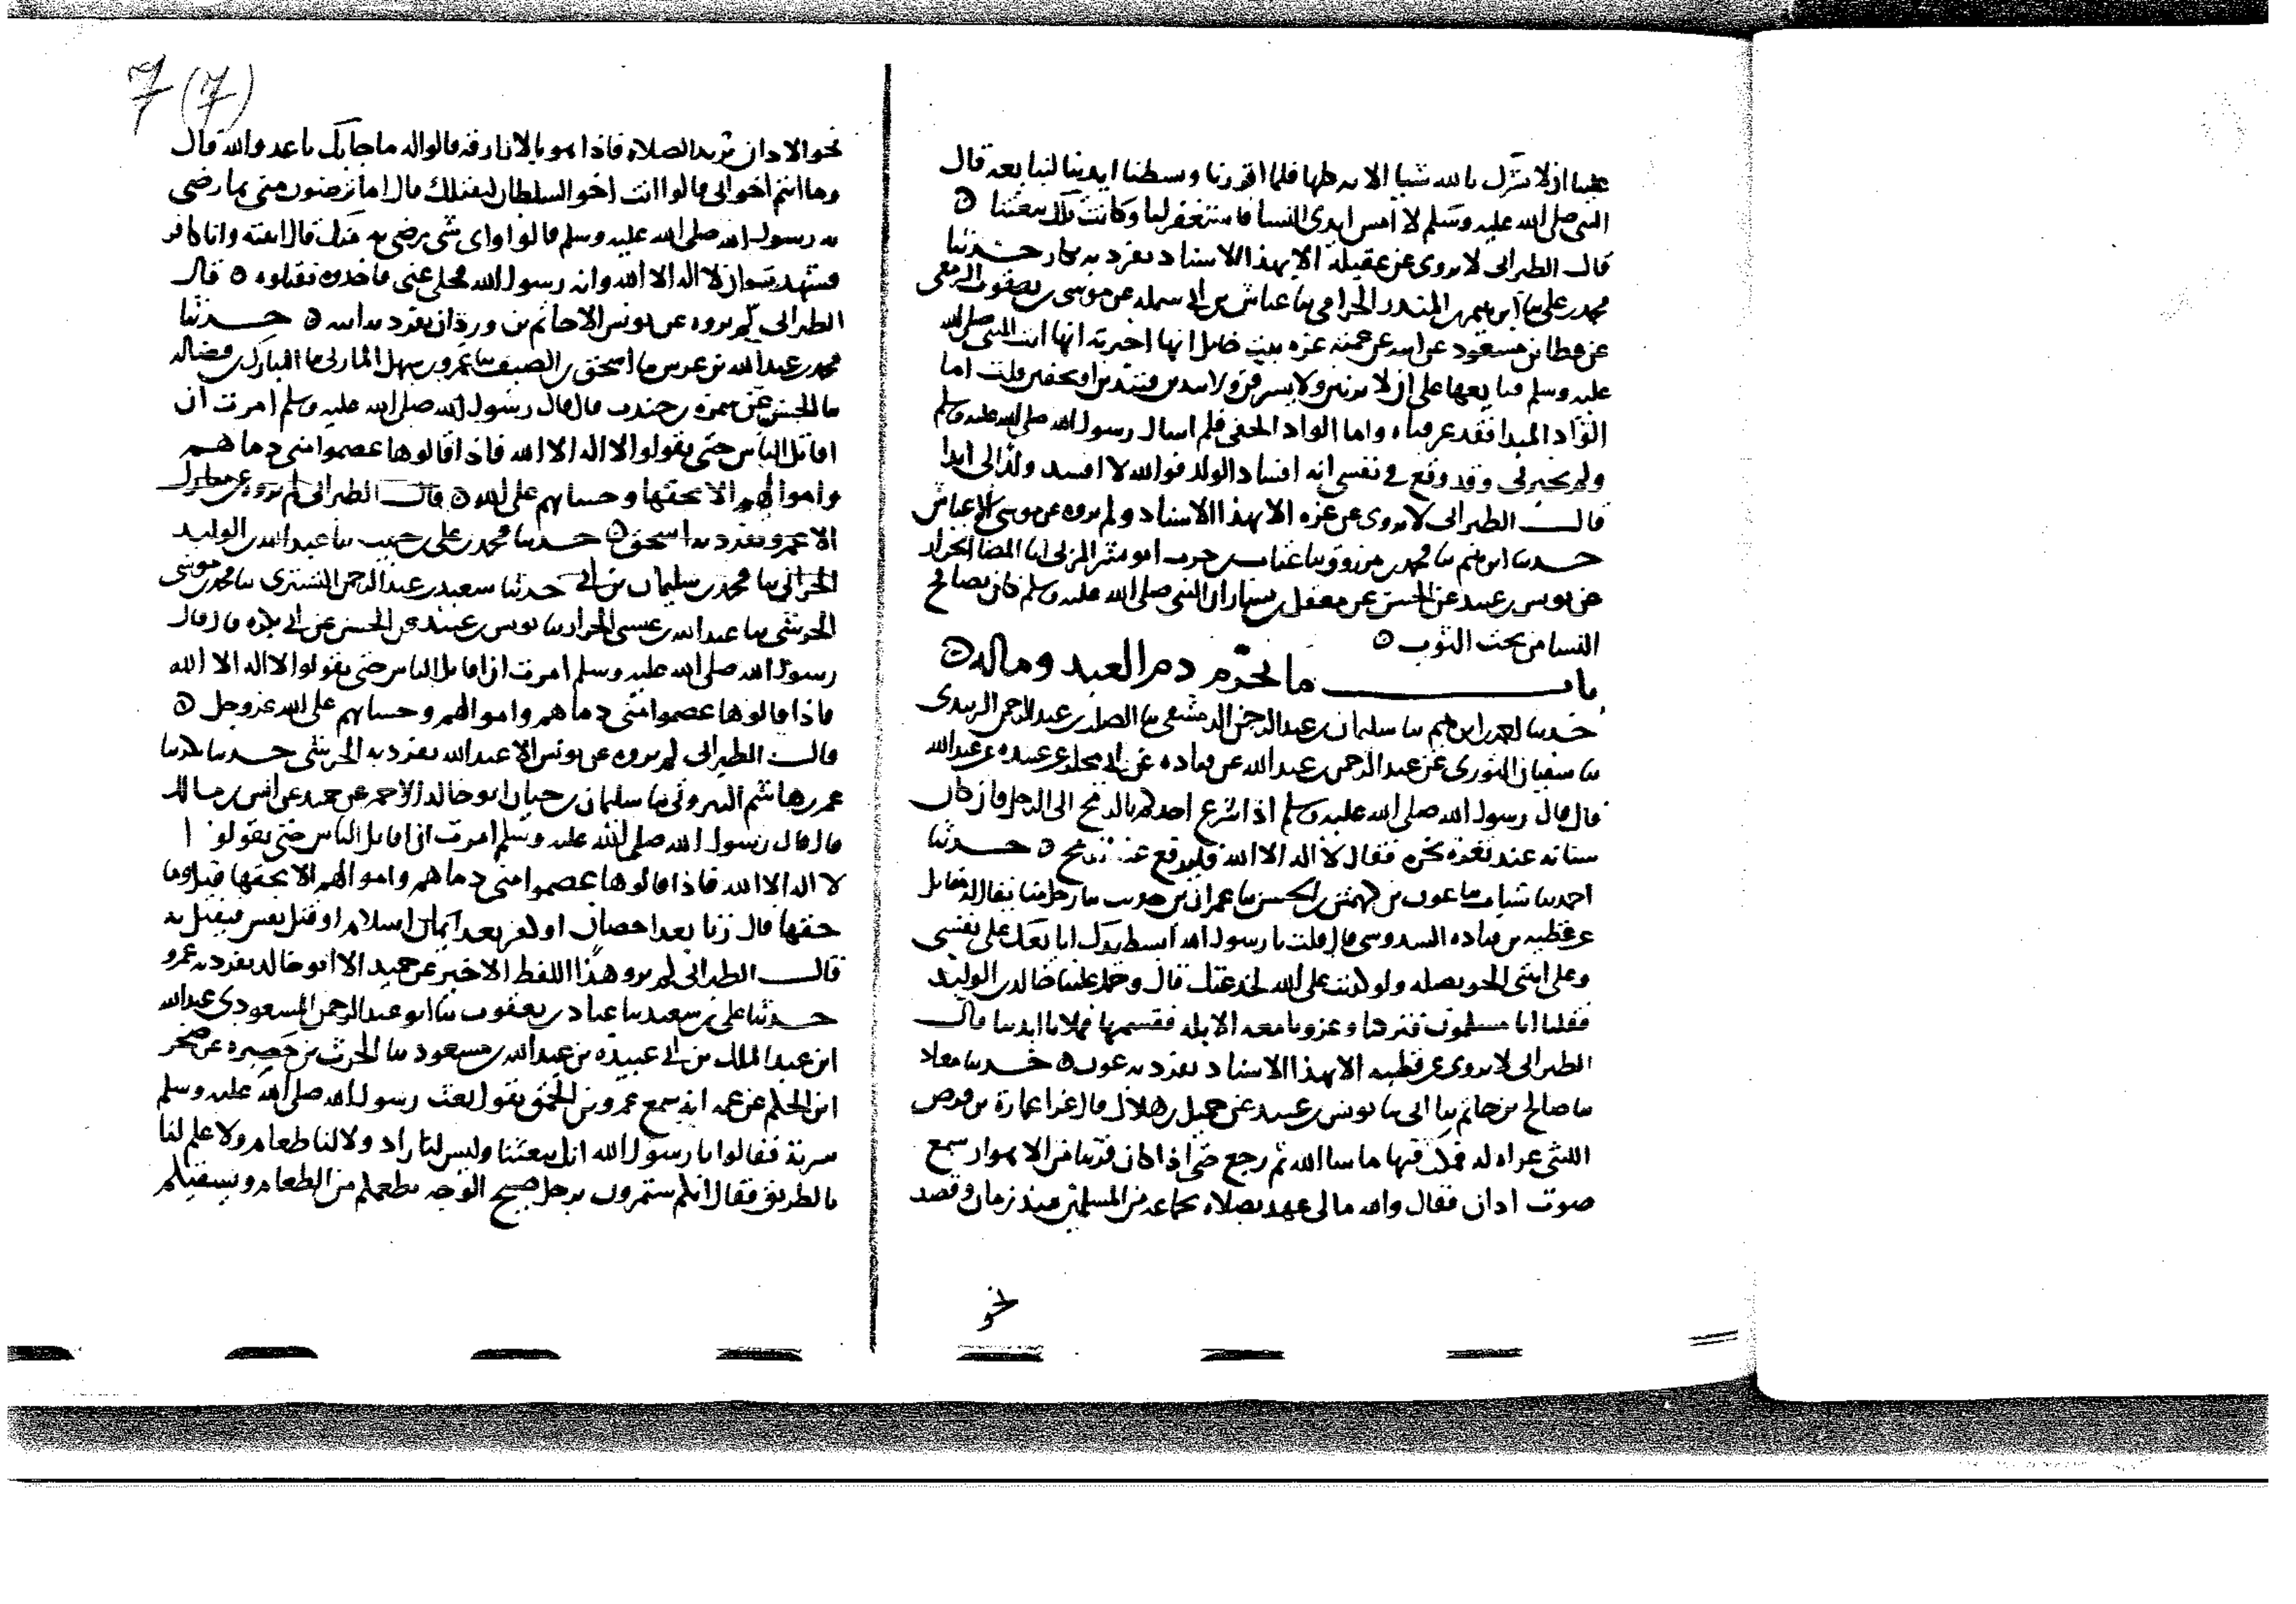 علينا ان لا نشرك بالله شيا الاية كلها فلما اقررنا وبسطنا ايدينا لنبايعه قال
النبي صلى الله عليه وسلم لا امس ايدي النسا فاستغفر لنا وكانت تلك بيعتنا ه
قال الطبراني لا يروى عن عقيلة الا بهذا الاسناد تفرد به بكار حدثنا
محمد بن علي ثنا ابراهيم بن المنذر الحزامي ثنا عباش بن ابي سملة عن موسى بن يعقوب الزمعي
عن عطا بن مسعود عن ابيه عن عمته عزة بنت خابل انها اخبرته انها اتت النبي صلى الله
عليه وسلم فبايعها على ان لا تزنين ولا تسرقين ولا تيدين فتبدين او تخفين قلت اما
الواد المبدا فقد عرفناه واما الواد الخفي فلم اسال رسول الله صلى الله عليه وسلم
ولم يخبرني وقد وقع في نفسي انه افساد الولد فوالله لا افسد ولدا لي ابدا
قال الطبراني لا يروى عن عزة الا بهذا الاسناد ولم يروه عن موسى الا عباش
حدثنا ابراهيم ثنا محمد بن مرزوق ثنا عتاب بن حرب ابو بشر المزني ثنا المضا الخراز
عن يونس بن عبيد عن الحسن عن معقل بن يسار ان النبي صلى الله عليه وسلم كان يصافح
النسا من تحت الثوب ه
باب ما يحرم دم العبد وماله ه
حدثنا احمد بن ابراهيم ثنا سليمان بن عبد الرحمن الدمشقي ثنا الصلت بن عبد الرحمن الزبيدي
ثنا سفيان الثوري عن عبد الرحمن بن عبد الله عن قتادة عن ابي مجلز عن ابي عبيدة عن عبد الله
قال قال رسول الله صلى الله عليه وسلم اذا اشرع احدكم بالرمح الى الرجل فان كان
سنانه عند ثغرة نحره فقال لا اله الا الله فليرفع عنه الرمح ه حدثنا
احمد ثنا شباب ثنا عون بن كهمس بن الحسن ثنا عمران بن حدير ثنا رجل منا يقال له مقاتل
عن قطبة بن قتادة السدوسي قال قلت يا رسول الله ابسط يدك ابايعك على نفسي
وعلى ابنتي الحويصلة ولو كذبت على الله لخدعتك قال وحمل علينا خالد بن الوليد
فقلنا انا مسلمون فتركنا وغزونا معه الابلة فقسمها فملانا ايدينا قال
الطبراني لا يروى عن قطبة الا بهذا الاسناد تفرد به عون ه حدثنا معاذ
ثنا صالح بن حاتم ثنا ابي ثنا يونس بن عبيد عن حميد بن هلال قال غزا عمارة بن قرص
الليثي غزاة له فمكث فيها ما شا الله ثم رجع حتى اذا كان قريبا من الاهواز سمع
صوت اذان فقال والله ما لي عهد بصلاة بجماعة من المسلمين منذ زمان وقصد
نحو
7 (7)
نحو الاذان يريد الصلاة فاذا هو بالازارقة قالوا له ما جا بك يا عدو الله قال
وما انتم اخواني قالوا انت اخو الشيطان لنقتلنك قال اما ترضون مني بما رضي
به رسول الله صلى الله عليه وسلم قالوا واي شي رضي به منك قال اتيته وانا كافر
فشهدت ان لا اله الا الله وانه رسول الله فخلى عني فاخذوه فقتلوه ه قال
الطبراني لم يروه عن يونس الا حاتم بن وردان تفرد به ابنه ه حدثنا
محمد بن عبد الله بن عرس ثنا اسحق بن الضيف ثنا عمرو بن سهل المازني ثنا المبارك بن فضالة
ثنا الحسن عن سمرة بن جندب قال قال رسول الله صلى الله عليه وسلم امرت ان
اقاتل الناس حتى يقولوا لا اله الا الله فاذا قالوها عصموا مني دماهم
واموالهم الا بحقها وحسابهم على الله ه قال الطبراني لم يروه عن مبارك
الا عمرو تفرد به اسحق ه حدثنا محمد بن علي بن حبيب ثنا عبد الله بن الوليد
الحراني ثنا محمد بن سليمان بن ابي حدثنا سعيد بن عبد الرحمن التستري ثنا محمد بن موسى
الحرشي ثنا عبد الله بن عيسى الخزاز ثنا يونس بن عبيد عن الحسن عن ابي بكرة قال قال
رسول الله صلى الله عليه وسلم امرت ان اقاتل الناس حتى يقولوا لا اله الا الله
فاذا قالوها عصموا مني دماهم واموالهم وحسابهم على الله عز وجل ه
قال الطبراني لم يروه عن يونس الا عبد الله تفرد به الحرشي حدثنا بكر ثنا
عمرو بن هاشم البيروتي ثنا سليمان بن حيان ابو خالد الاحمر عن حميد عن انس بن مالك
قال قال رسول الله صلى الله عليه وسلم امرت ان اقاتل الناس حتى يقولوا
لا اله الا الله فاذا قالوها عصموا مني دماهم واموالهم الا بحقها قيل وما
حقها قال زنا بعد احصان او كفر بعد ايمان اسلام او قتل نفس فيقتل به
قال الطبراني لم يرو هذا اللفظ الاخير عن حميد الا ابو خالد تفرد به عمرو
حدثنا علي بن سعيد ثنا عباد بن يعقوب ثنا ابو عبد الرحمن المسعودي عبد الله
ابن عبد الملك بن ابي عبيدة بن عبد الله بن مسعود ثنا الحرث بن حصيرة عن صخر
ابن الحكم عن عمه انه سمع عمرو بن الحمق يقول بعث رسول الله صلى الله عليه وسلم
سرية فقالوا يا رسول الله انك تبعثنا وليس لنا زاد ولا لنا طعام ولا علم لنا
بالطريق فقال انكم ستمرون برجل صبيح الوجه يطعمكم من الطعام ويسقيكم